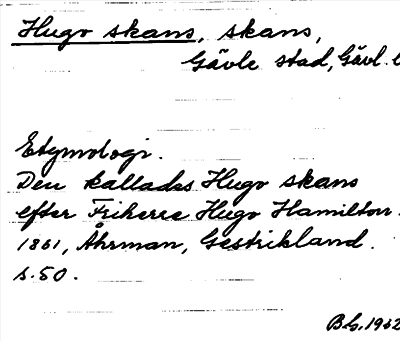 Hugo skans, skans,
Gävle stad, Gävl. l
Etymologi.
Den kallades Hugo skans
efter Friherre Hugo Hamilton.
1861, Åhrman, Gestrikland.
s. 50.
1932